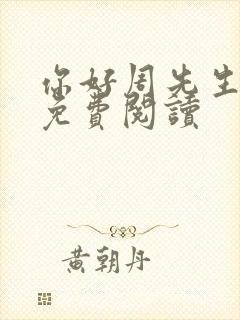 你好周先生
免費閱讀
黃朝丹